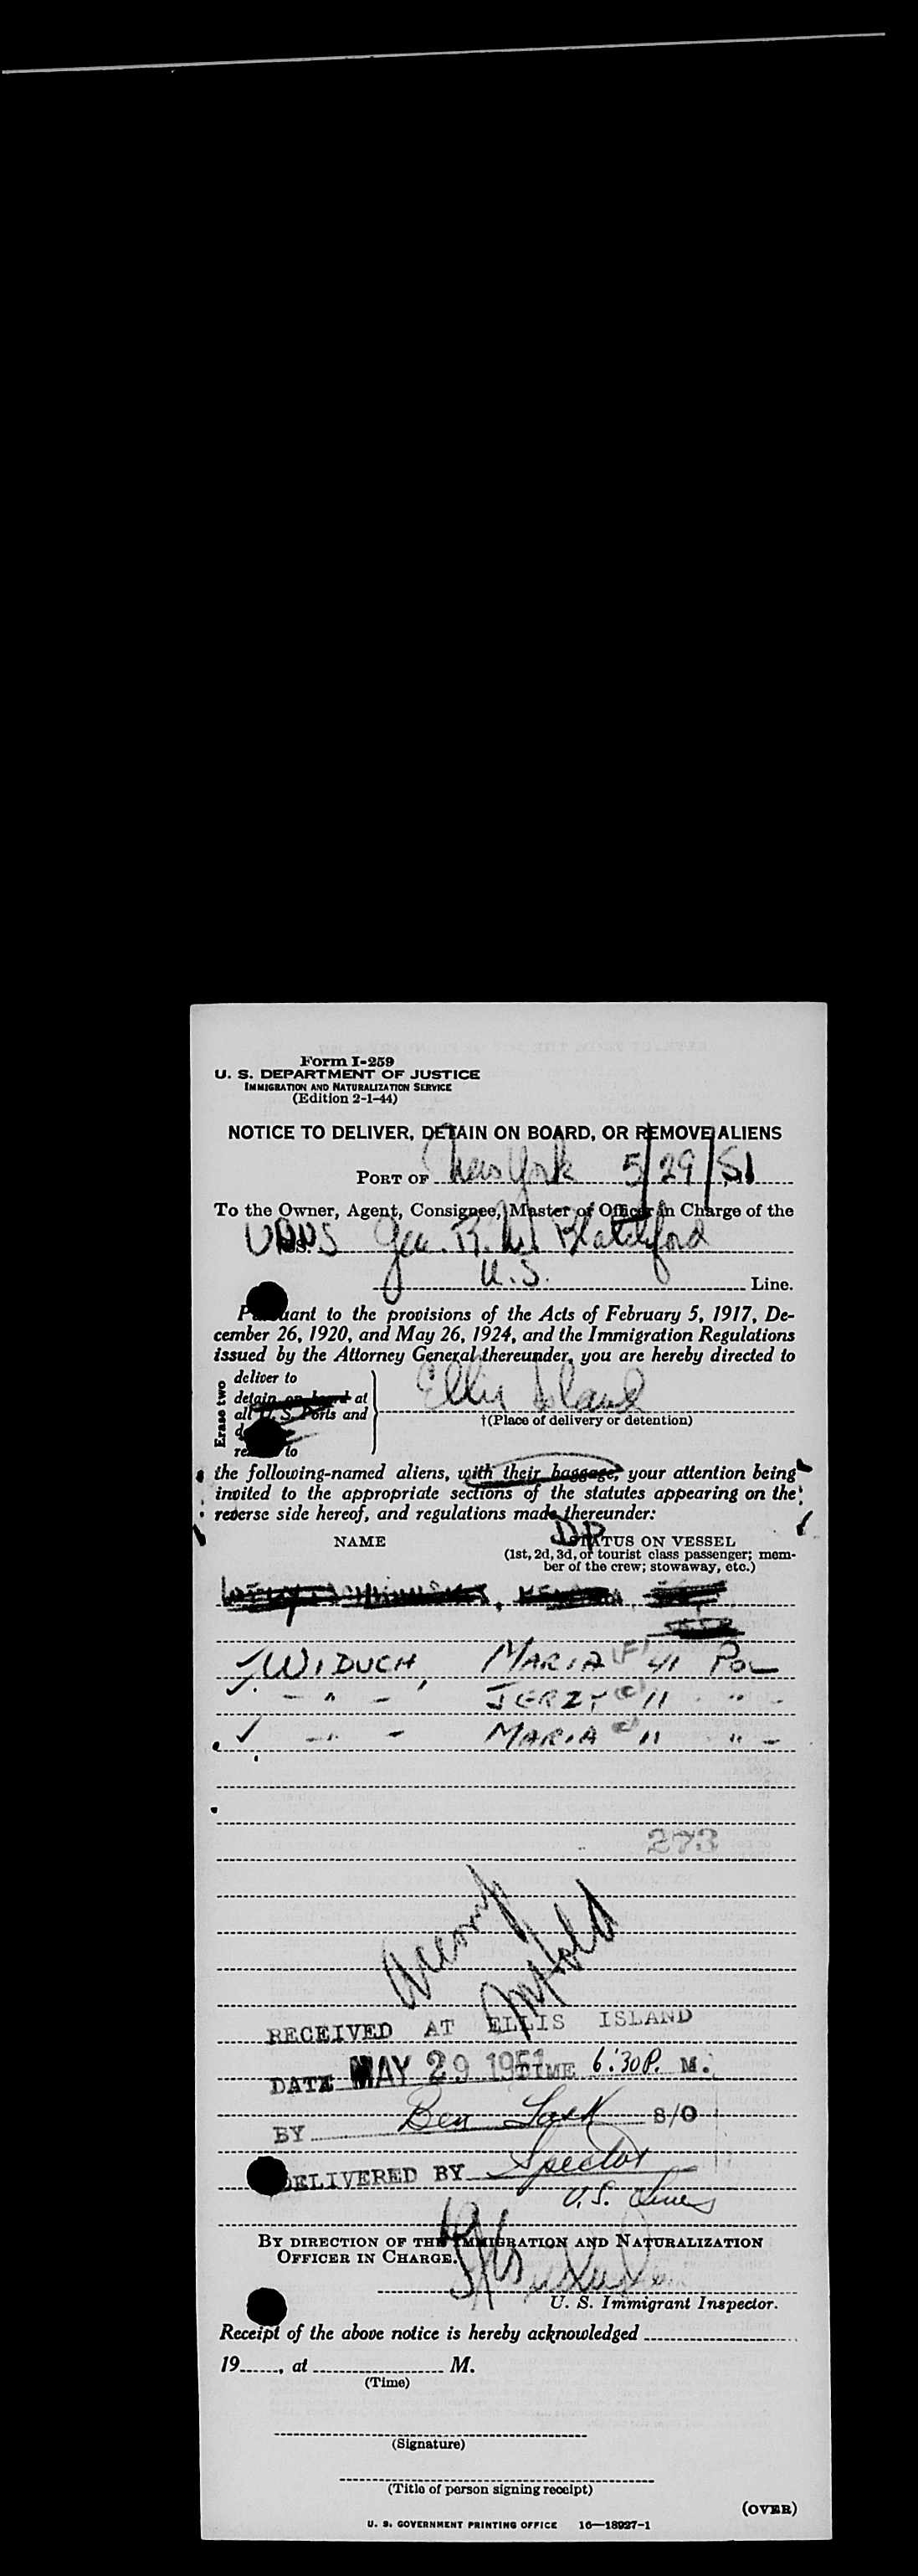 Form I-259
U. S. DEPARTMENT OF JUSTICE
IMMIGRATION AND NATURALIZATION SERVICE
(Edition 2-1-44)
NOTICE TO DELIVER, DETAIN ON BOARD, OR REMOVE ALIENS
PORT OF New York 5/29/51
To the Owner, Agent, Consignee, Master or Officer in Charge of the
Gen. R. M. Blatchford
U.S. Line.
Pursuant to the provisions of the Acts of February 5, 1917, De-
cember 26, 1920, and May 26, 1924, and the Immigration Regulations
issued by the Attorney General thereunder, you are hereby directed to
Erase two
deliver to
detain on board at
all U. S. Ports and
to
Ellis Island
†(Place of delivery or detention)
the following-named aliens, with their baggage, your attention being
invited to the appropriate sections of the statutes appearing on the
reverse side hereof, and regulations made thereunder:
DP
NAME STATUS ON VESSEL
(1st, 2d, 3d, or tourist class passenger; mem-
ber of the crew; stowaway, etc.)
✓ WIDUCH, MARIA (F) 41 POL
✓ - " - JERZY (c) 11 " -
✓ - " - MARIA (c) 11 " -
273
RECEIVED AT ELLIS ISLAND
DATE MAY 29 1951 TIME 6:30 P. M.
BY Ben S/O
DELIVERED BY Spector
U.S. Lines
BY DIRECTION OF THE IMMIGRATION AND NATURALIZATION
OFFICER IN CHARGE.
U. S. Immigrant Inspector.
Receipt of the above notice is hereby acknowledged
19......, at M.
(Time)
(Signature)
(Title of person signing receipt)
(OVER)
U. S. GOVERNMENT PRINTING OFFICE 16—18927-1